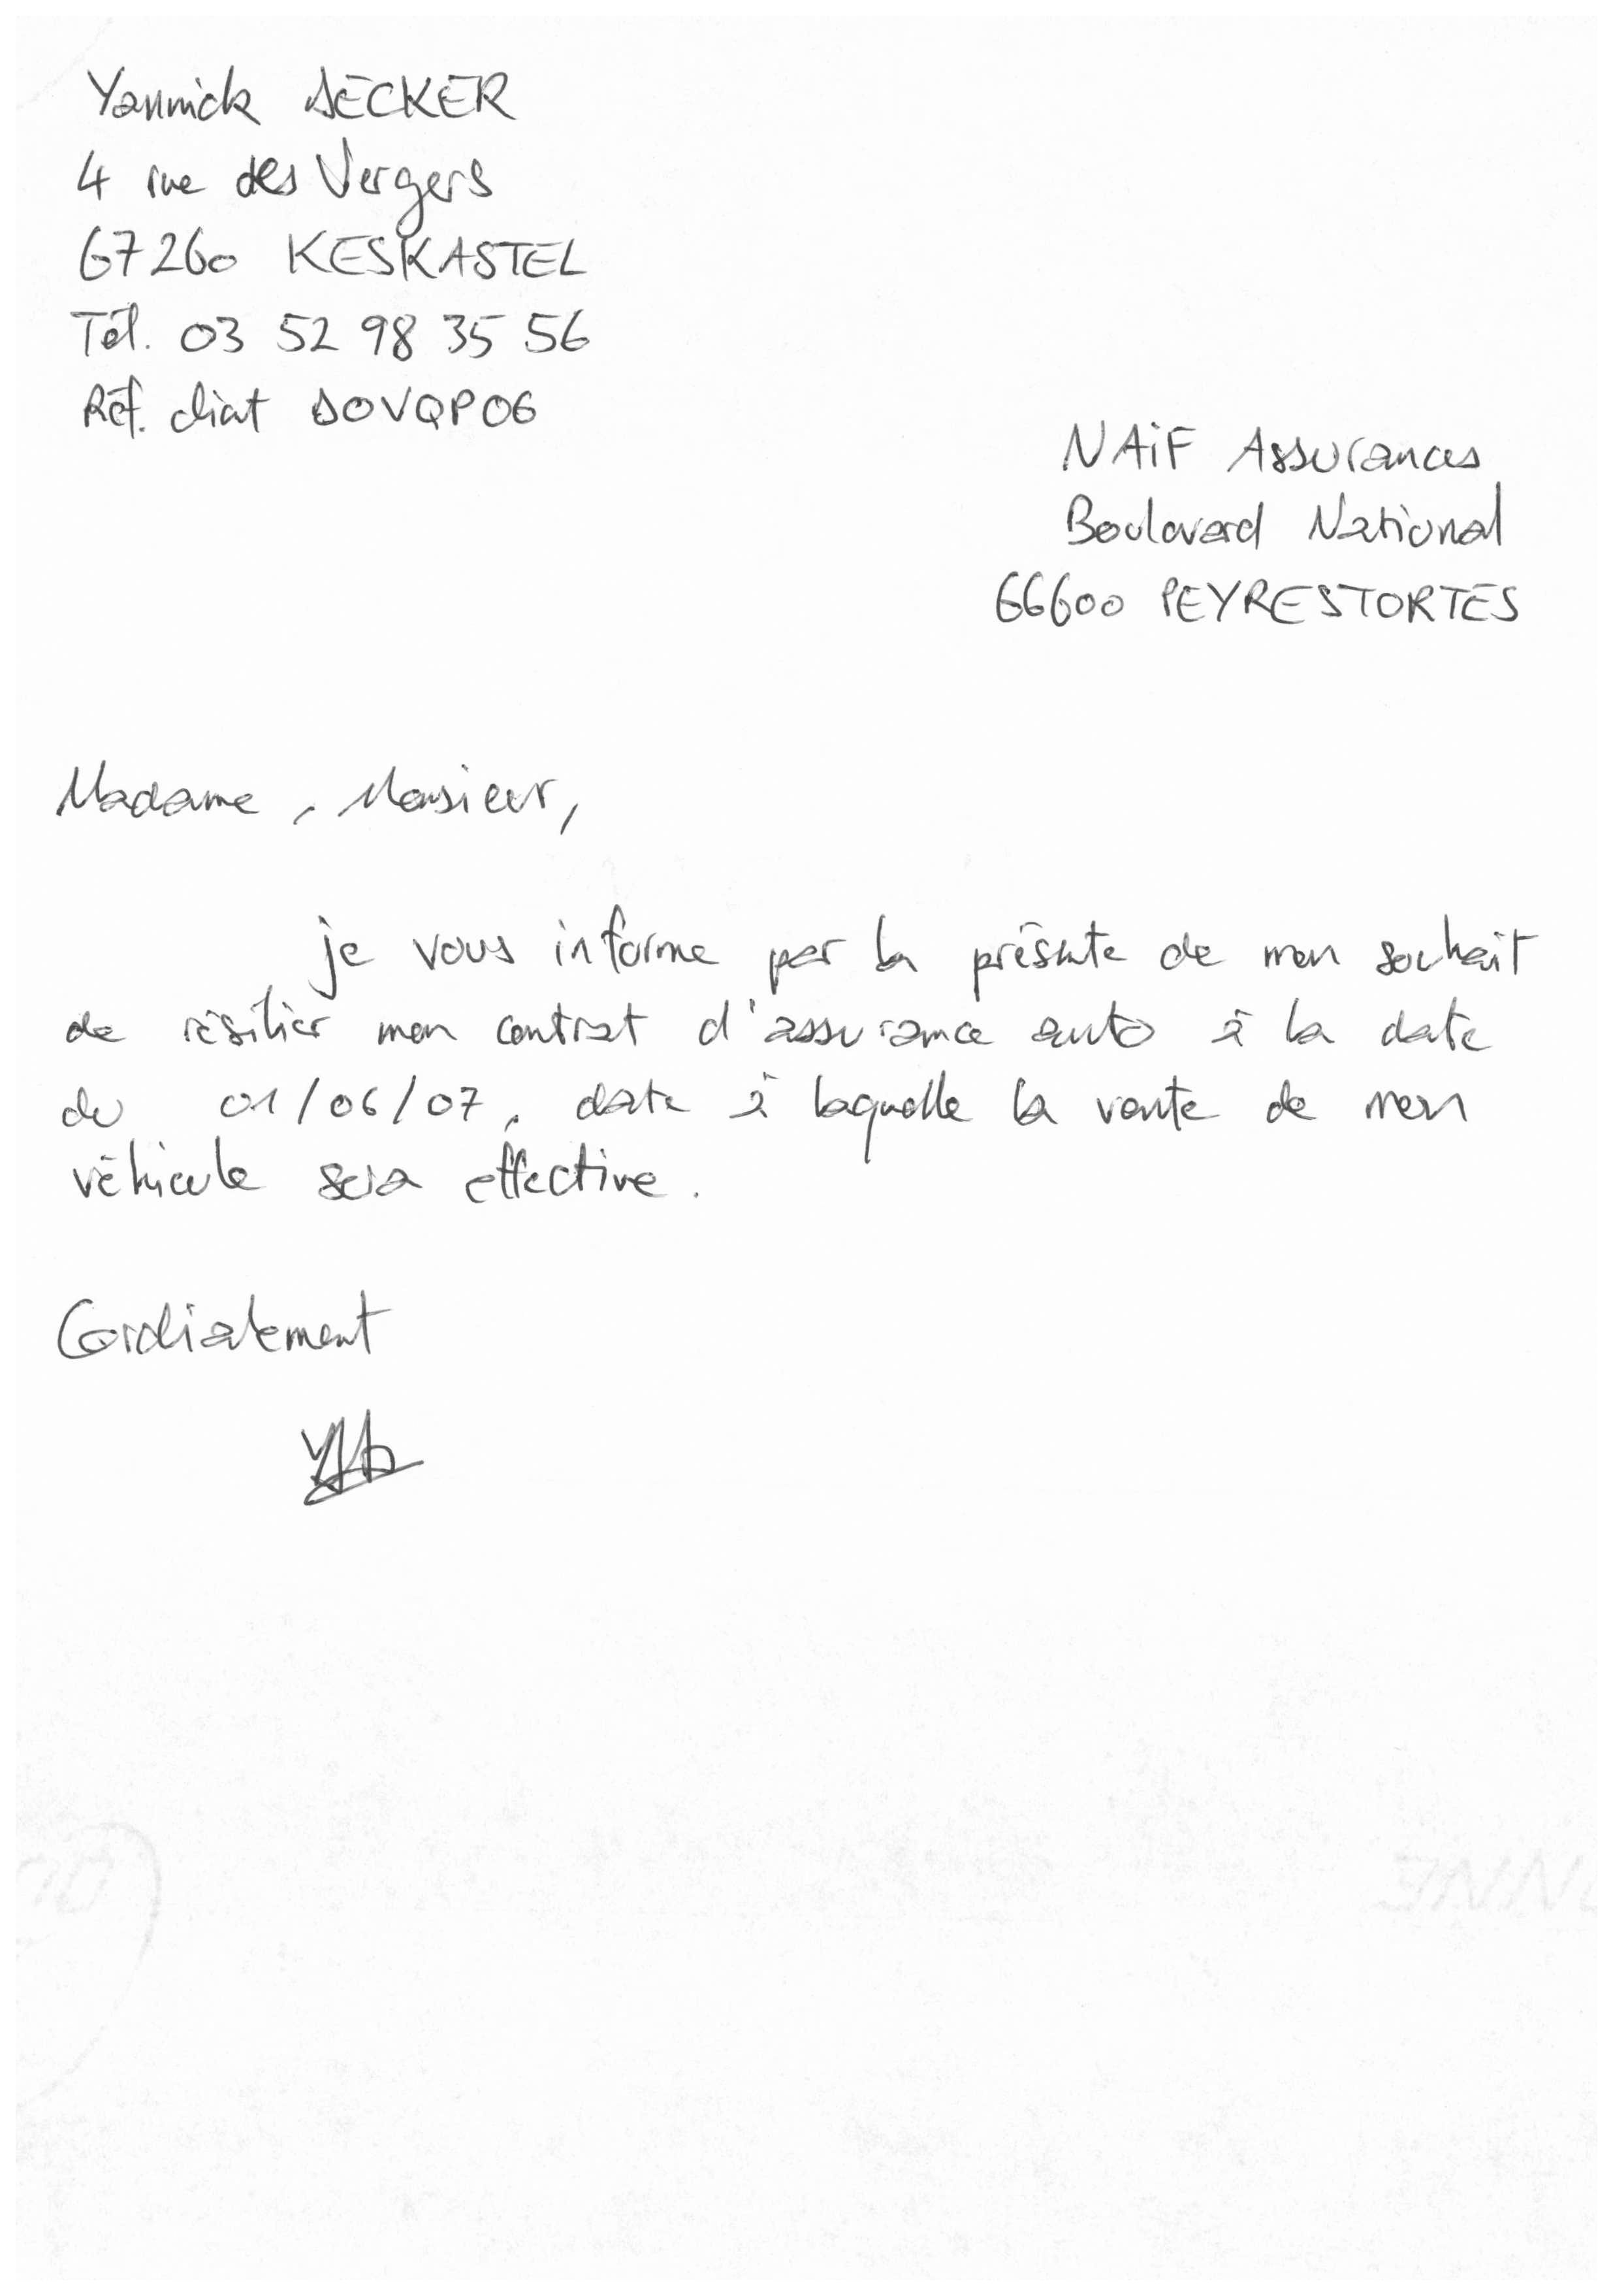 Yannick DECKER
4 rue des Vergers
67260 KESKASTEL
Tél. 03 52 98 35 56
Réf. client DOVQP06
NAiF Assurances
Boulevard National
66600 PEYRESTORTES
Madame, Monsieur,
je vous informe par la présente de mon souhait
de résilier mon contrat d'assurance auto à la date
du 01/06/07, date à laquelle la vente de mon
véhicule sera effective.
Cordialement